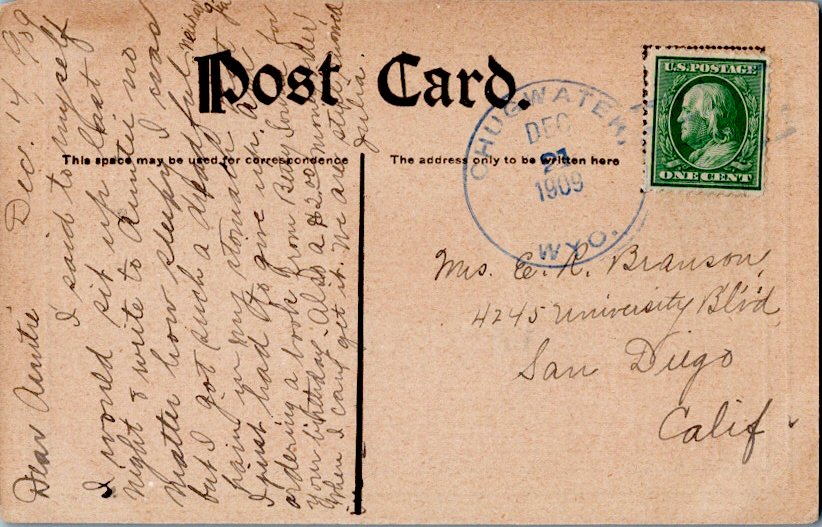 Post Card.
This space may be used for correspondence
The address only to be written here
U.S. POSTAGE
ONE CENT
CHUGWATER,
DEC
21
1909
WYO.
Mrs. E. R. Branson,
4245 University Blvd
San Diego
Calif
Dec. 14, 1909
Dear Auntie
I said to myself
I would sit up last
night & write to Auntie no
matter how sleepy I was
but I got such a
pain in my stomach
I just had to give up. Am
ordering a book from Betty for
your birthday. Also a $2.00 money order
when I can get it. We are
Julia.